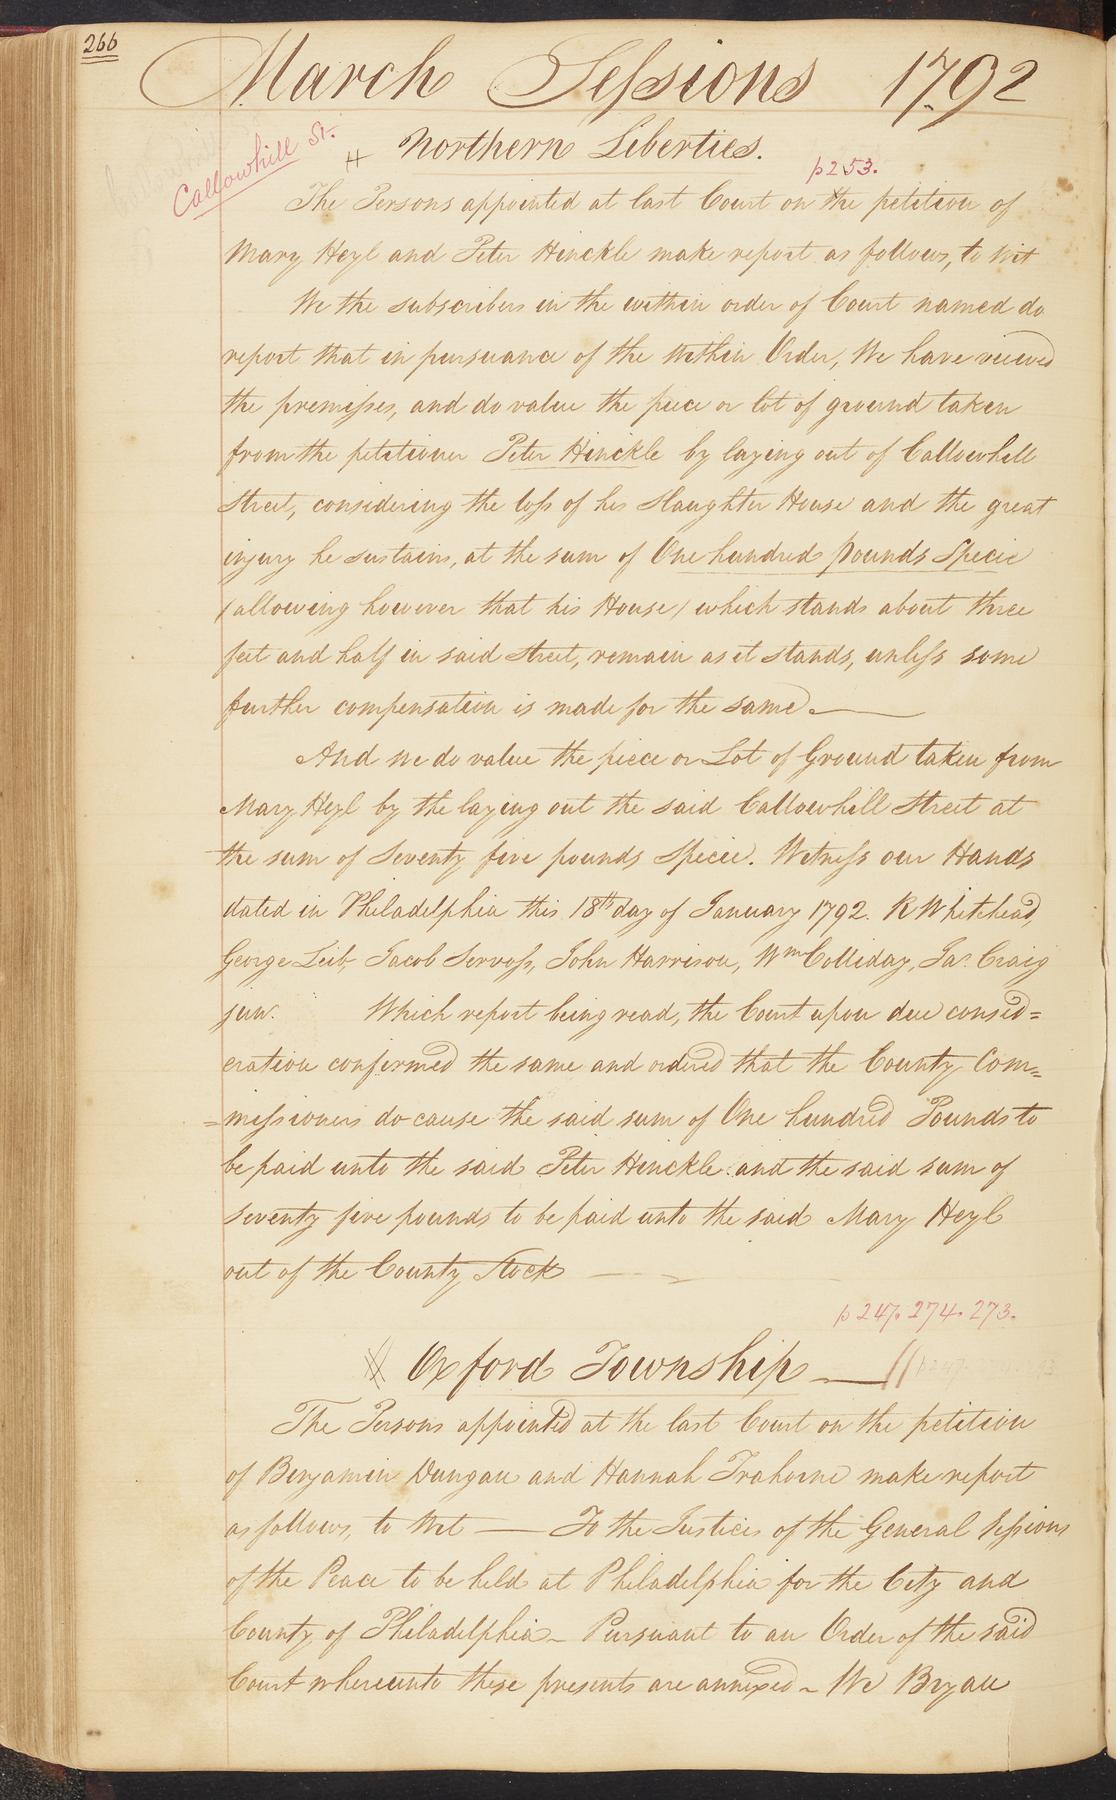 266
March Sessions 1792
Callowhill St.
Northern Liberties.
p253.
The Persons appointed at last Court on the petition of
Mary Heyl and Peter Hinckle make report as follows, to Wit
We the subscribers in the within order of Court named do
report that in pursuance of the within Order, We have viewed
the premisses, and do value the piece or lot of ground taken
from the petitioner Peter Hinckle by laying out of Callowhill
Street, considering the loss of his Slaughter House and the great
injury he sustains, at the sum of One hundred pounds Specie
(allowing however that his House) which stands about three
feet and half in said Street, remain as it stands, unless some
further compensation is made for the same.
And we do value the piece or Lot of Ground taken from
Mary Heyl by the laying out the said Callowhill Street at
the sum of Seventy five pounds Specie. Witness our Hands
dated in Philadelphia this 18th day of January 1792. R Whitehead,
George Leib, Jacob Servoss, John Harrison, Wm Colliday, Jas. Craig
junr. Which report being read, the Court upon due consid=
eration confirmed the same and ordered that the County Com=
=missioners do cause the said sum of One hundred Pounds to
be paid unto the said Peter Hinckle and the said sum of
seventy five pounds to be paid unto the said Mary Heyl
out of the County Stock
p 247. 274. 273.
Oxford Township
The Persons appointed at the last Court on the petition
of Benjamin Dungan and Hannah Trahorne make report
as follows, to Wit — To the Justices of the General Sessions
of the Peace to be held at Philadelphia for the City and
County of Philadelphia – Pursuant to an Order of the said
Court whereunto these presents are annexed – We Bryan